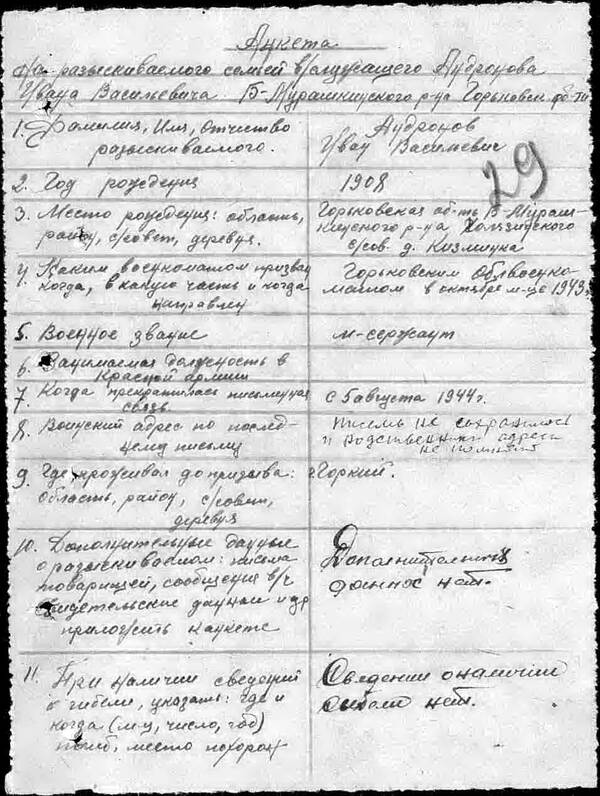 Анкета
На разыскиваемого семьей в/служащего Андронова
Ивана Васильевича В-Мурашкинского р-на Горьковск. об-ти
1. Фамилия, Имя, отчество
разыскиваемого.
Андронов
Иван Васильевич
29
2. Год рождения
1908
3. Место рождения: область,
район, с/совет, деревня.
Горьковская об-ть В-Мураш-
кинского р-на
с/сов. д.
4. Каким военкоматом призван
когда, в какую часть и когда
направлен
Горьковским Облвоенко-
матом в октябре м-це 1943г.
5. Военное звание
м-сержант
6. Занимаемая должность в
Красной армии
7. Когда прекратилась письменная
связь
с 5 августа 1944г.
8. Воинский адрес по послед-
нему письму
Письма не сохранилось
и родственники адреса
не помнят
9. Где проживал до призыва:
область, район, с/совет,
деревня
г. Горкий.
10. Дополнительные данные
о разыскиваемом: письма
товарищей, сообщения в/ч
свидетельские данные и др
приложить к анкете
Дополнительных
данных нет.
11. При наличии сведений
о гибели, указать: где и
когда (м-ц, число, год)
погиб, место похорон
Сведении о наличии
гибели нет.